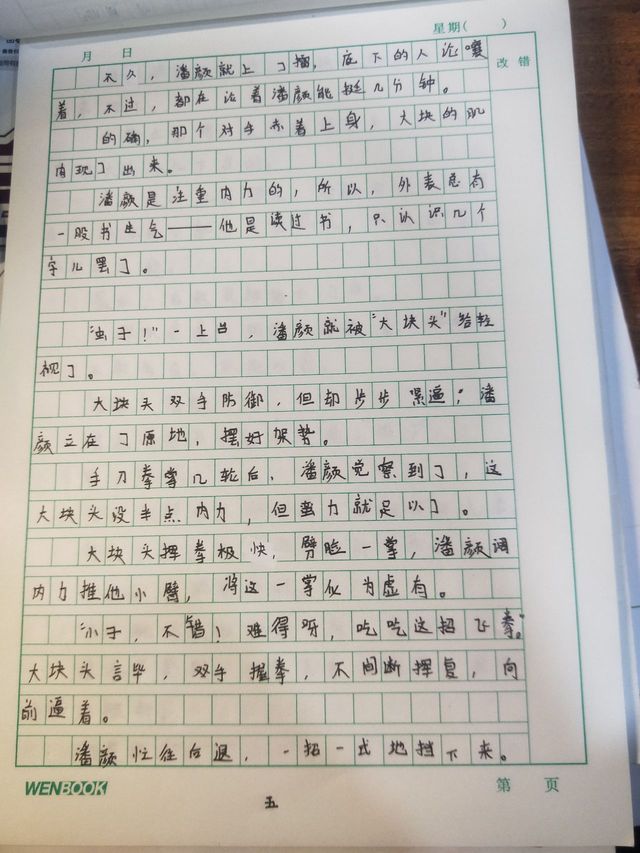 星期( )
月 日
改错
不久，潘颜就上了擂，底下的人论嚷
着，不过，都在论着潘颜能挺几分钟。
的确，那个对手赤着上身，大块的肌
肉现了出来。
潘颜是注重内力的，所以，外表总有
一股书生气——他是读过书，只认识几个
字儿罢了。
"虫子！"一上台，潘颜就被"大块头"给轻
视了。
大块头双手防御，但却步步紧逼；潘
颜立在了原地，摆好架势。
手刀拳掌几轮后，潘颜觉察到了，这
大块头没半点内力，但蛮力就足以了。
大块头挥拳极快，劈脸一掌，潘颜调
内力推他小臂，将这一掌似为虚有。
"小子，不错！难得呀，吃吃这招飞拳。"
大块头言毕，双手握拳，不间断挥复，向
前逼着。
潘颜忙往后退，一招一式地挡下来。
WENBOOK
第 页
五